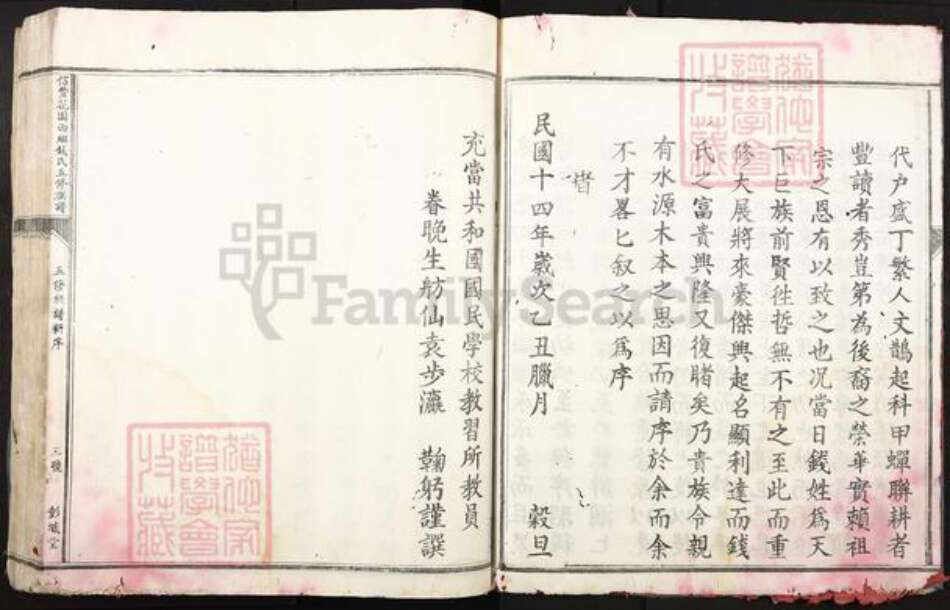 代户盛丁繁人文鵲起科甲蟬聯耕者
豐讀者秀豈第為後裔之榮華實賴祖
宗之恩有以致之也况當日錢姓為天
下巨族前賢徃哲無不有之至此而重
修大展將來豪傑興起名顯利達而錢
氏之富貴興隆又復睹矣乃貴族令親
有水源木本之思因而請序於余而余
不才畧匕叙之以為序
旹
民國十四年歲次乙丑臘月 穀旦
充當共和國國民學校教習所教員
眷晚生舫仙袁步瀛 鞠躬謹譔
五修族譜新序
三號
彭城堂
FamilySearch